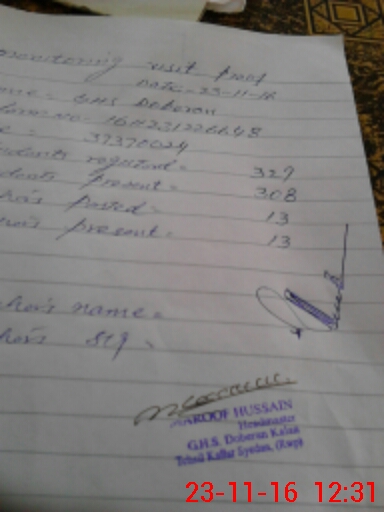 monitoring visit proof
Date:- 23-11-16
= GHS Doberan
No-
= 37370029
registered = 327
present = 308
Posted = 13
present = 13
name =
sig =
MAROOF HUSSAIN
Headmaster
G.H.S. Doberan Kalan
Tehsil Kallar Syedan, (Rwp)
23-11-16 12:31